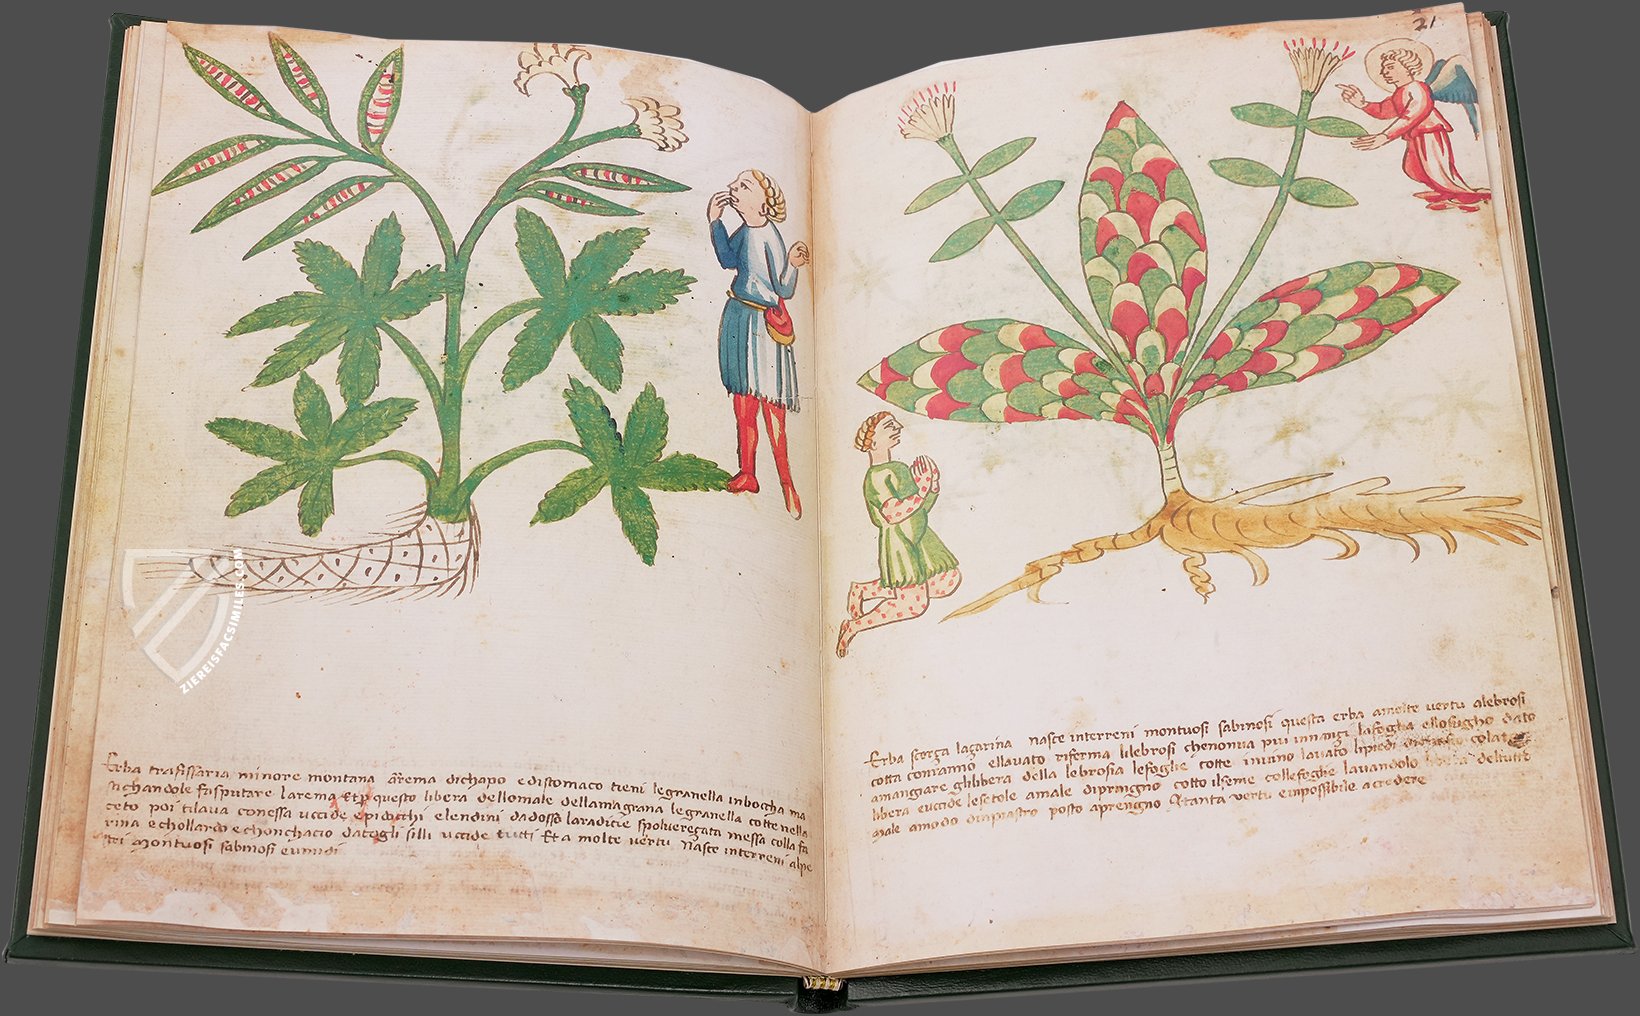 21
Erba trassaria minore montana arema dichapo edistomaco tieni legranella inbocha ma
sichandole fasputare larema Et questo libera dellomale dellamagrana legranella cotte nella
ceto poi tilava conessa uccide epidocchi elendini dadosso laradicie spolverezata messa colla fa
rina echollardo echonchacio datogli silli uccide tutti Et a molte vertu Nasce interreni alpe
stri montuosi sabinosi eumidi
ZIEREISFACSIMILES.COM
Erba scorza lazarina nasce interreni montuosi sabinosi questa erba amolte vertu alebrosi
cotta convanno ellavato riferma lilebrosi chenonva piu innanzi lafoglia ellosugho dato
amangiare ghlibbera della lebrosia lefoglie cotte invino lavato lipiedi
libera euccide lesetole amale diprengno cotto ilseme collefoglie lavandolo libera delture
male amodo dinpiastro posto aprengno Et tanta vertu eimpossibile accedere